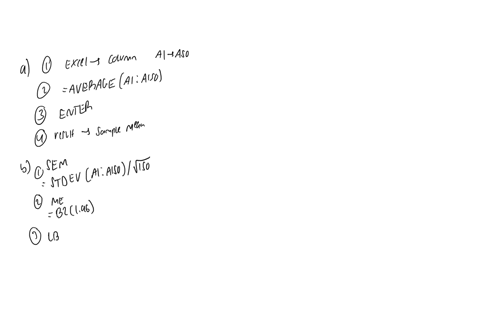 a) ① EXCEL → Column A1→A150
② =AVERAGE(A1:A150)
③ ENTER
④ result → Sample mean
b) ① SEM
= STDEV(A1:A150)/√150
② ME
= B2(1.96)
③ LB